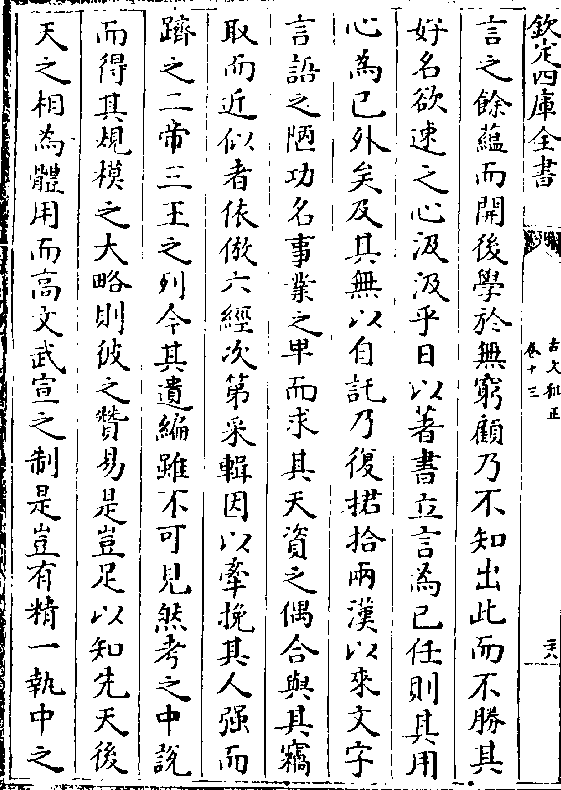 欽定四庫全書
古文雅正
卷十三
言之餘蘊而開後學於無窮顧乃不知出此而不勝其
好名欲速之心汲汲乎日以著書立言為已任則其用
心為已外矣及其無以自託乃復捃拾兩漢以來文字
言語之陋功名事業之卑而求其天資之偶合與其竊
取而近似者依倣六經次第采輯因以牽挽其人强而
躋之二帝三王之列今其遺編雖不可見然考之中說
而得其規模之大略則彼之贊易是豈足以知先天後
天之相為體用而高文武宣之制是豈有精一執中之